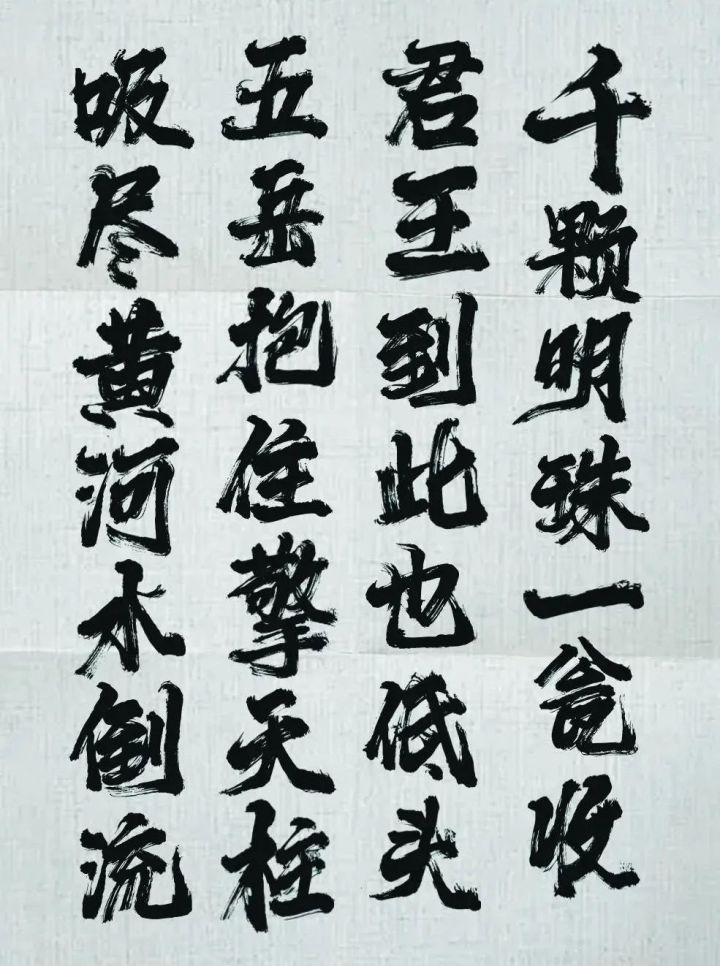 千颗明珠一瓮收
君王到此也低头
五岳抱住擎天柱
吸尽黄河水倒流